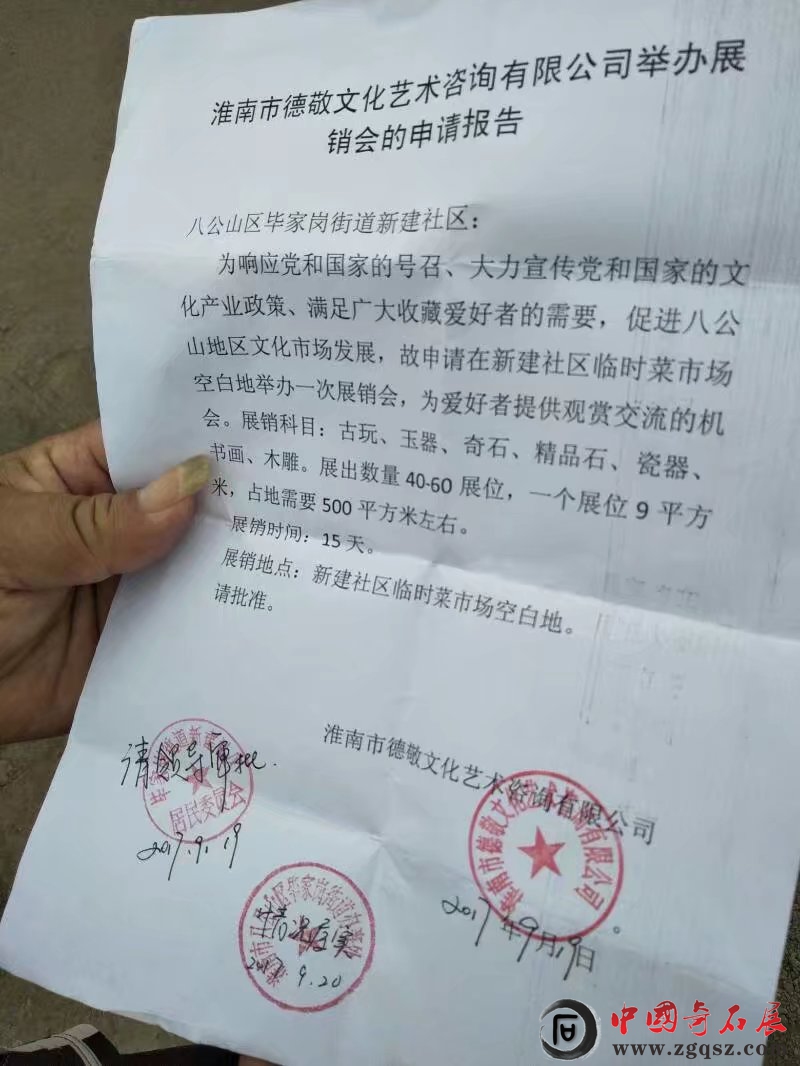 淮南市德敬文化艺术咨询有限公司举办展
销会的申请报告
八公山区毕家岗街道新建社区：
为响应党和国家的号召、大力宣传党和国家的文
化产业政策、满足广大收藏爱好者的需要，促进八公
山地区文化市场发展，故申请在新建社区临时菜市场
空白地举办一次展销会，为爱好者提供观赏交流的机
会。展销科目：古玩、玉器、奇石、精品石、瓷器、
书画、木雕。展出数量 40-60 展位，一个展位 9 平方
米，占地需要 500 平方米左右。
展销时间：15 天。
展销地点：新建社区临时菜市场空白地。
请批准。
淮南市德敬文化艺术咨询有限公司
淮南市德敬文化艺术咨询有限公司
。
2017年9月19日
请领导审批.
居民委员会
2017.9.19
情况属实
9.20
中國奇石展
www.zgqsz.com